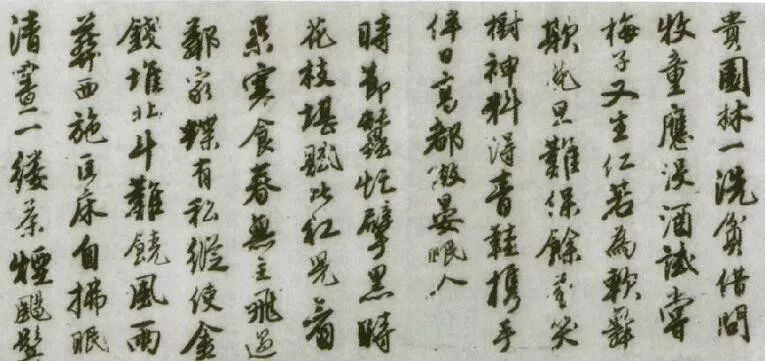 貴園林一洗貧借問
牧童應沒酒試嘗
梅子又生仁若為軟舞
欺花旦難保餘香笑
樹神料得青鞋携手
伴日高都做晏眠人
時節蠶忙擘黑時
花枝堪賦比紅兒看
來寒食春無主飛過
鄰家蝶有私縱使金
錢堆北斗難饒風雨
葬西施匡床自拂眠
清晝一縷茶煙颺鬢